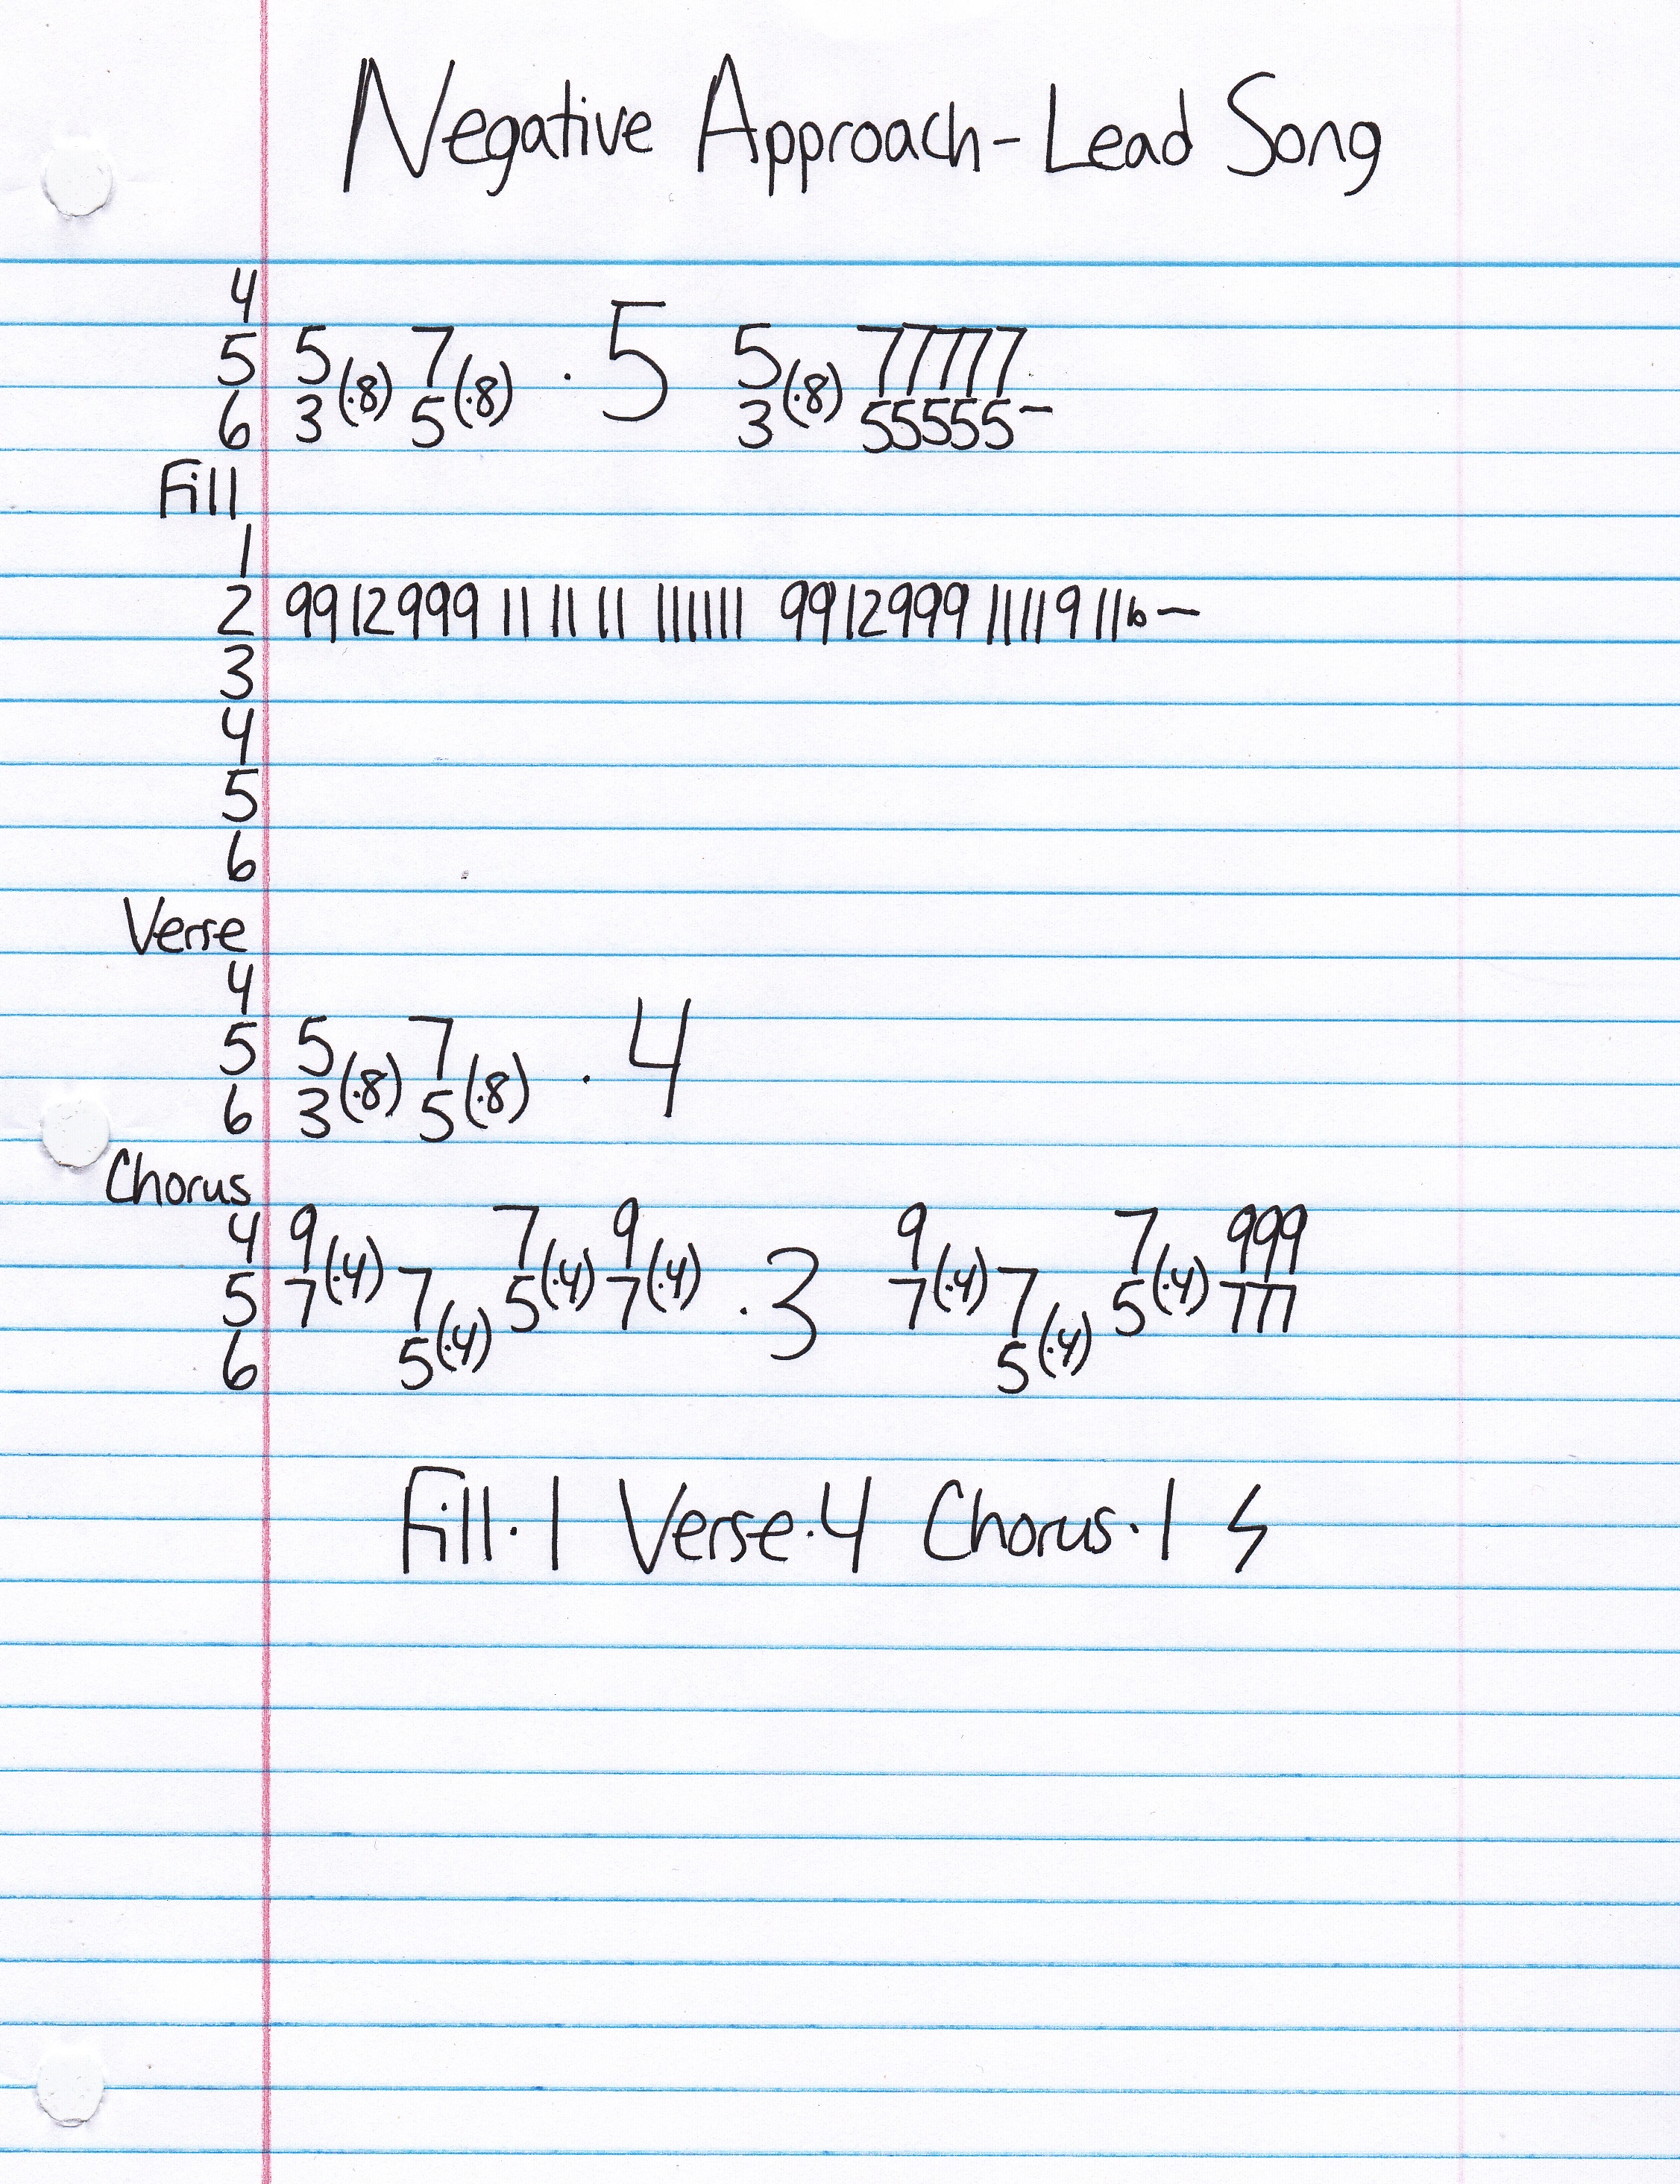 Negative Approach - Lead Song
4
5 5 7 5 77777
5 (·8) (·8) · 5 (·8)
6 3 5 3 55555–
Fill
1
2 99 12 999 11 11 11 111111 99 12 999 11 11 9 11 b –
3
4
5
6
Verse
4
5 5 (·8) 7 (·8) · 4
6 3 5
Chorus
4 9 (·4) 7 (·4) 9 (·4) · 3 9 (·4) 7 (·4) 999
5 7 7 (·4) 5 7 7 (·4) 5 777
6 5 5
Fill·1 Verse·4 Chorus·1